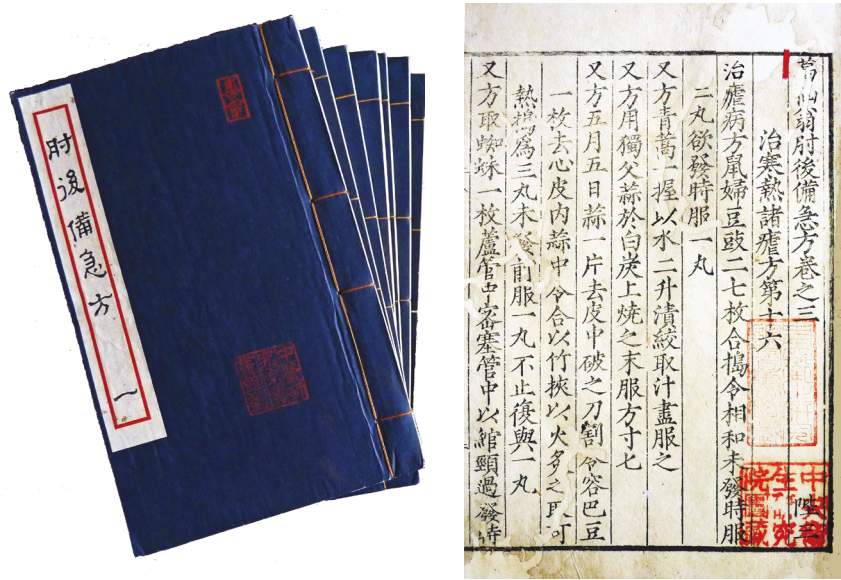 肘後備急方
一
葛仙翁肘後備急方卷之三
治寒熱諸瘧方第十六
治瘧病方鼠婦豆豉二七枚合搗令相和未發時服
二丸欲發時服一丸
又方青蒿一握以水二升漬絞取汁盡服之
又方用獨父蒜於白炭上燒之末服方寸匕
又方五月五日蒜一片去皮中破之刀割令容巴豆
一枚去心皮內蒜中令合以竹挾以火炙之取可
熱搗爲三丸未發前服一丸不止復與一丸
又方取蜘蛛一枚蘆管中密塞管中以綰頸過發時